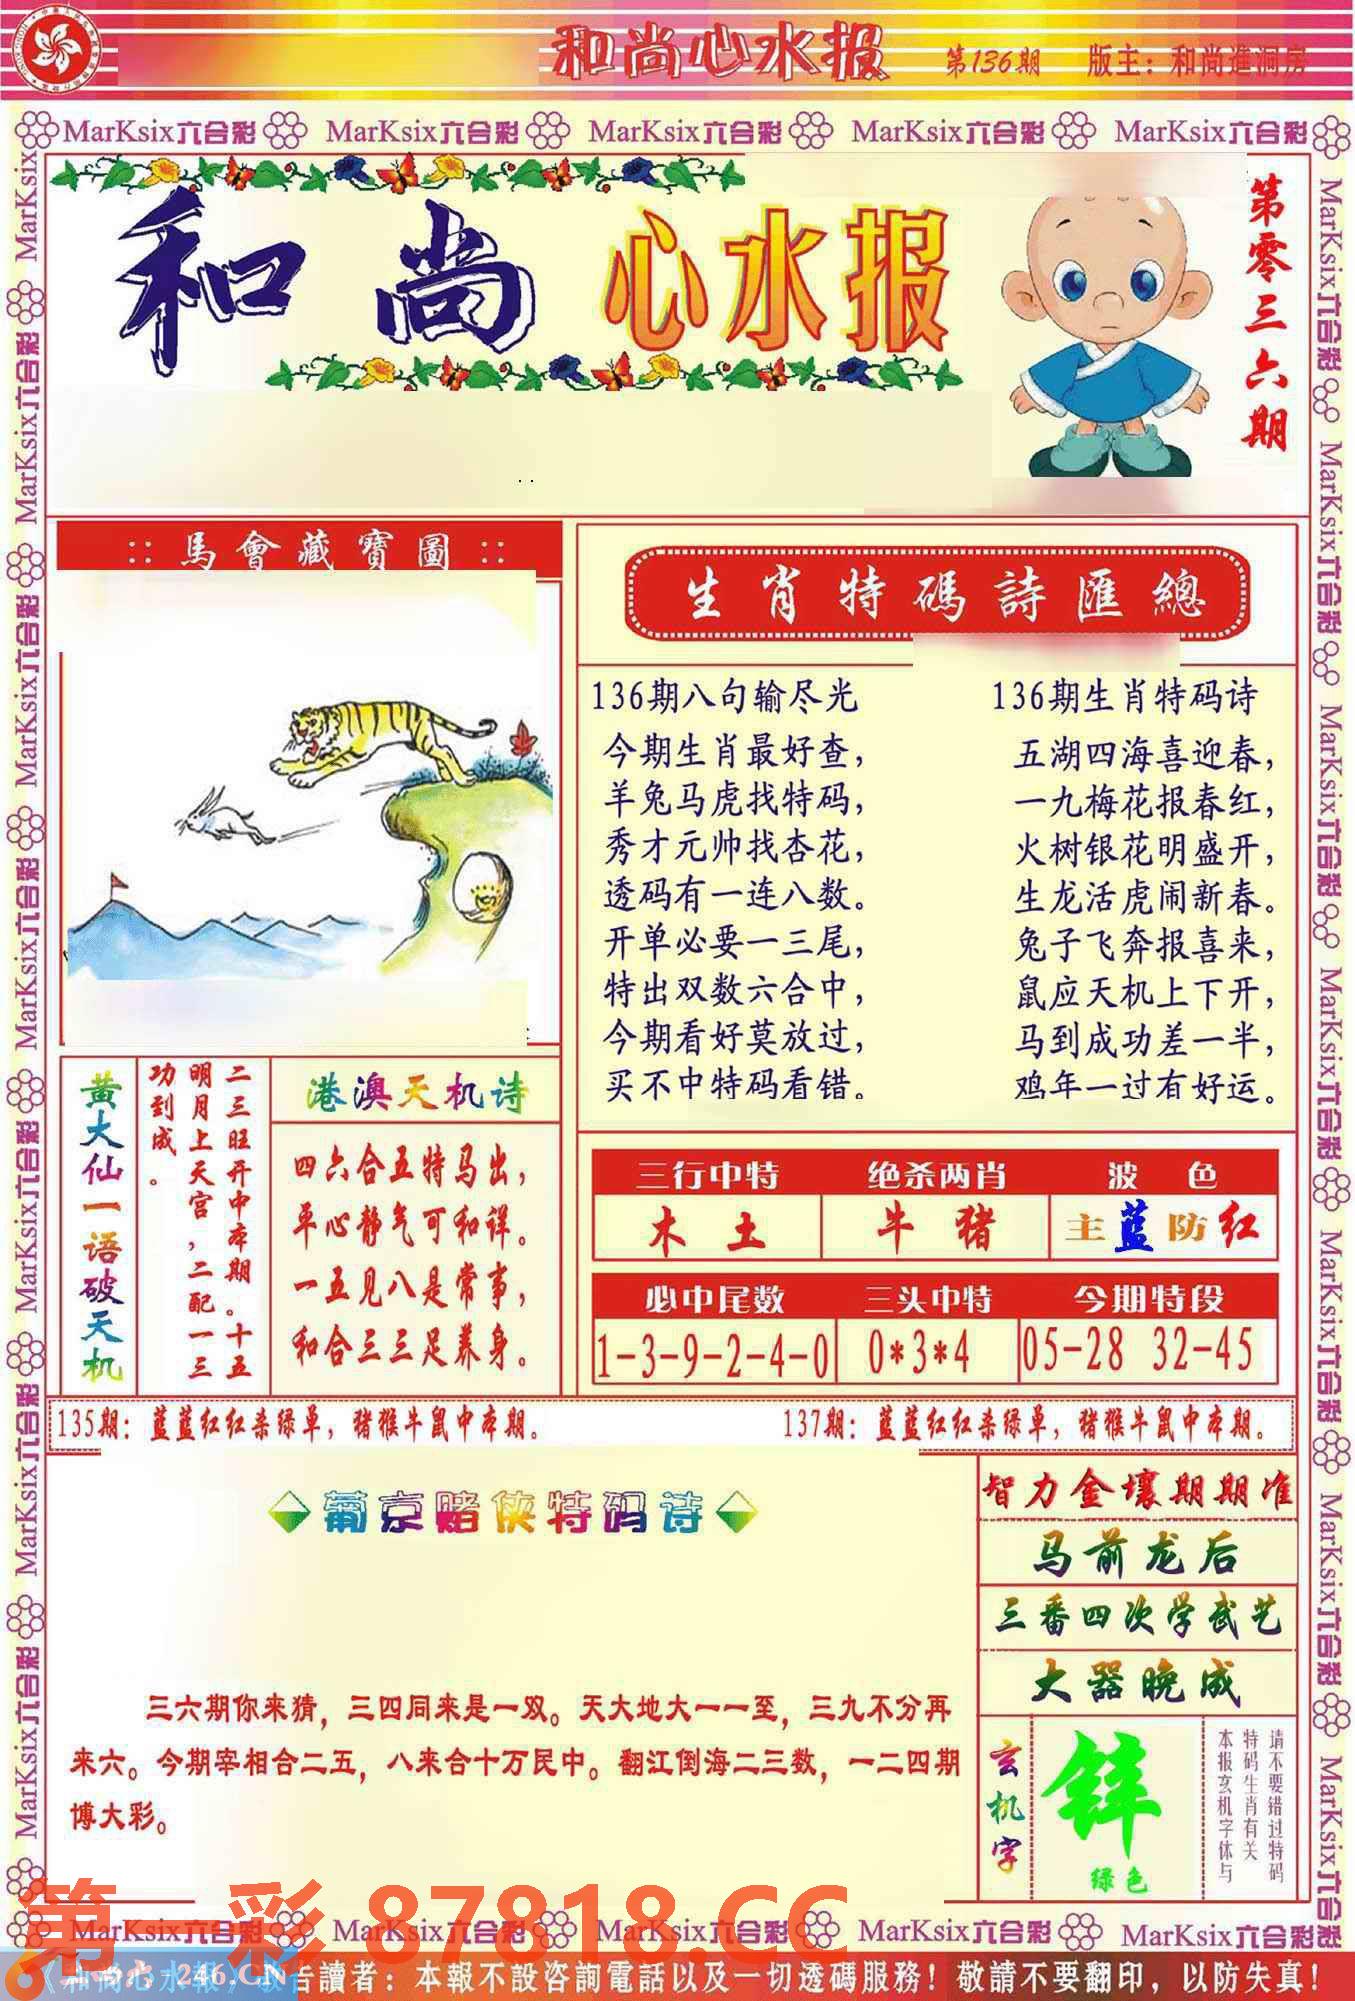 和尚心水报 第136期 版主：和尚進洞房
MarKsix六合彩 MarKsix六合彩 MarKsix六合彩 MarKsix六合彩 MarKsix六合彩
和尚 心水报
第零三六期
:: 馬會藏寶圖 ::
生肖特碼詩匯總
136期八句输尽光
今期生肖最好查，
羊兔马虎找特码，
秀才元帅找杏花，
透码有一连八数。
开单必要一三尾，
特出双数六合中，
今期看好莫放过，
买不中特码看错。
136期生肖特码诗
五湖四海喜迎春，
一九梅花报春红，
火树银花明盛开，
生龙活虎闹新春。
兔子飞奔报喜来，
鼠应天机上下开，
马到成功差一半，
鸡年一过有好运。
黄大仙一语破天机
二三旺开中本期。十五
明月上天宫，二配一三
功到成。
港澳天机诗
四六合五特马出，
平心静气可和详。
一五见八是常事，
和合三三足养身。
三行中特 绝杀两肖 波色
木土 牛猪 主蓝防红
必中尾数 三头中特 今期特段
1-3-9-2-4-0 0*3*4 05-28 32-45
135期：蓝蓝红红杀绿单，猪猴牛鼠中本期。
137期：蓝蓝红红杀绿单，猪猴牛鼠中本期。
葡京赌侠特码诗
三六期你来猜，三四同来是一双。天大地大一一至，三九不分再
来六。今期宰相合二五，八来合十万民中。翻江倒海二三数，一二四期
博大彩。
智力金壤期期准
马前龙后
三番四次学武艺
大器晚成
玄机字
锌
绿色
请不要错过特码
特码生肖有关
本报玄机字体与
第一彩 87818.CC
MarKsix六合彩 MarKsix六合彩 MarKsix六合彩 MarKsix六合彩 MarKsix六合彩
246.CN
告讀者：本報不設咨詢電話以及一切透碼服務！敬請不要翻印，以防失真！